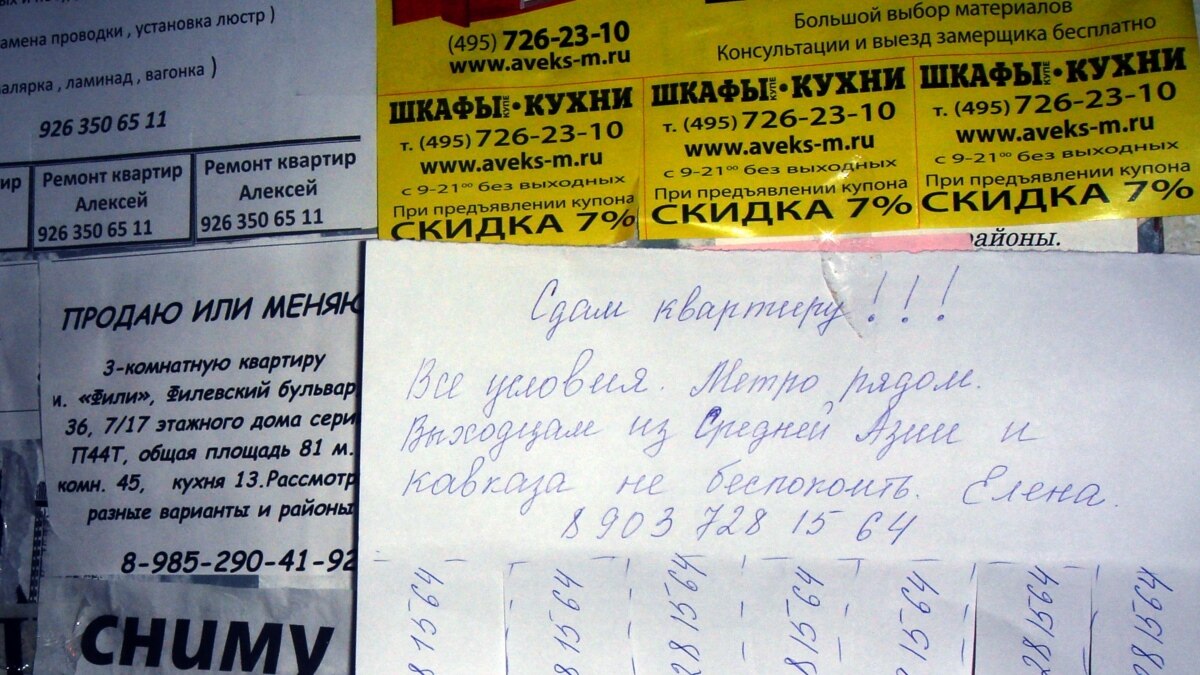 амена проводки , установка люстр )
алярка , ламинад , вагонка )
926 350 65 11
ир
Ремонт квартир
Алексей
926 350 65 11
Ремонт квартир
Алексей
926 350 65 11
(495) 726-23-10
www.aveks-m.ru
Большой выбор материалов
Консультации и выезд замерщика бесплатно
ШКАФЫ КУПЕ • КУХНИ
т. (495) 726-23-10
www.aveks-m.ru
с 9-21⁰⁰ без выходных
При предъявлении купона
СКИДКА 7%
ШКАФЫ КУПЕ • КУХНИ
т. (495) 726-23-10
www.aveks-m.ru
с 9-21⁰⁰ без выходных
При предъявлении купона
СКИДКА 7%
ШКАФЫ КУПЕ • КУХНИ
т. (495) 726-23-10
www.aveks-m.ru
с 9-21⁰⁰ без выходных
При предъявлении купона
СКИДКА 7%
айоны.
ПРОДАЮ ИЛИ МЕНЯЮ
3-комнатную квартиру
м. «Фили», Филевский бульвар
36, 7/17 этажного дома сери
П44Т, общая площадь 81 м.
комн. 45, кухня 13.Рассмотр
разные варианты и районы
8-985-290-41-92
сниму
Сдам квартиру!!!
Все условия. Метро рядом.
Выходцам из Средней Азии и
Кавказа не беспокоить. Елена.
8 903 728 15 64
8 1564
8 1564
28 1564
8 1564
1564
28 1564
28 1564